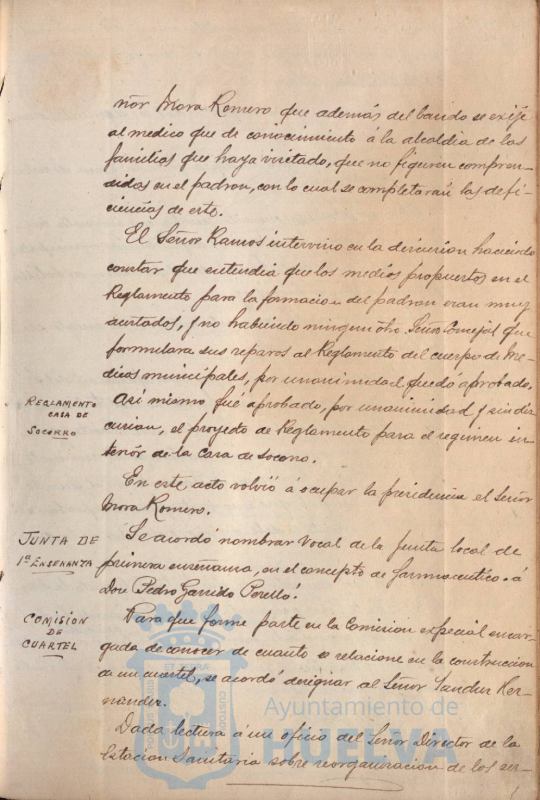 ñor Mora Romero que además del bando se exije
al medico que de conocimiento á la alcaldia de las
familias que haya visitado, que no figuren compren-
didas en el padron, con lo cual se completarán las defi-
ciencias de este.
El Señor Ramos intervino en la discusion haciendo
constar que entendia que los medios propuestos en el
Reglamento para la formacion del padron eran muy
acertados, y no habiendo ningun otro Señor Concejal que
formulara sus reparos al Reglamento del cuerpo de Me-
dicos municipales, por unanimidad quedó aprobado.
REGLAMENTO
CASA DE
SOCORRO
Asi mismo fué aprobado, por unanimidad y sin dis-
cusion, el proyecto de Reglamento para el regimen in-
terior de la Casa de Socorro.
En este acto volvió á ocupar la presidencia el Señor
Mora Romero.
JUNTA DE
1ª ENSEÑANZA
Se acordó nombrar Vocal de la Junta local de
primera enseñanza, en el concepto de farmaceutico á
Don Pedro Garrido Perelló.
COMISION
DE
CUARTEL
Para que forme parte en la Comision especial encar-
gada de conocer de cuanto se relacione en la construccion
de un cuartel, se acordó designar al Señor Sanchez Her-
nandez.
Dada lectura á un oficio del Señor Director de la
Estacion Sanitaria sobre reorganizacion de los ser-
Ayuntamiento de
HUELVA